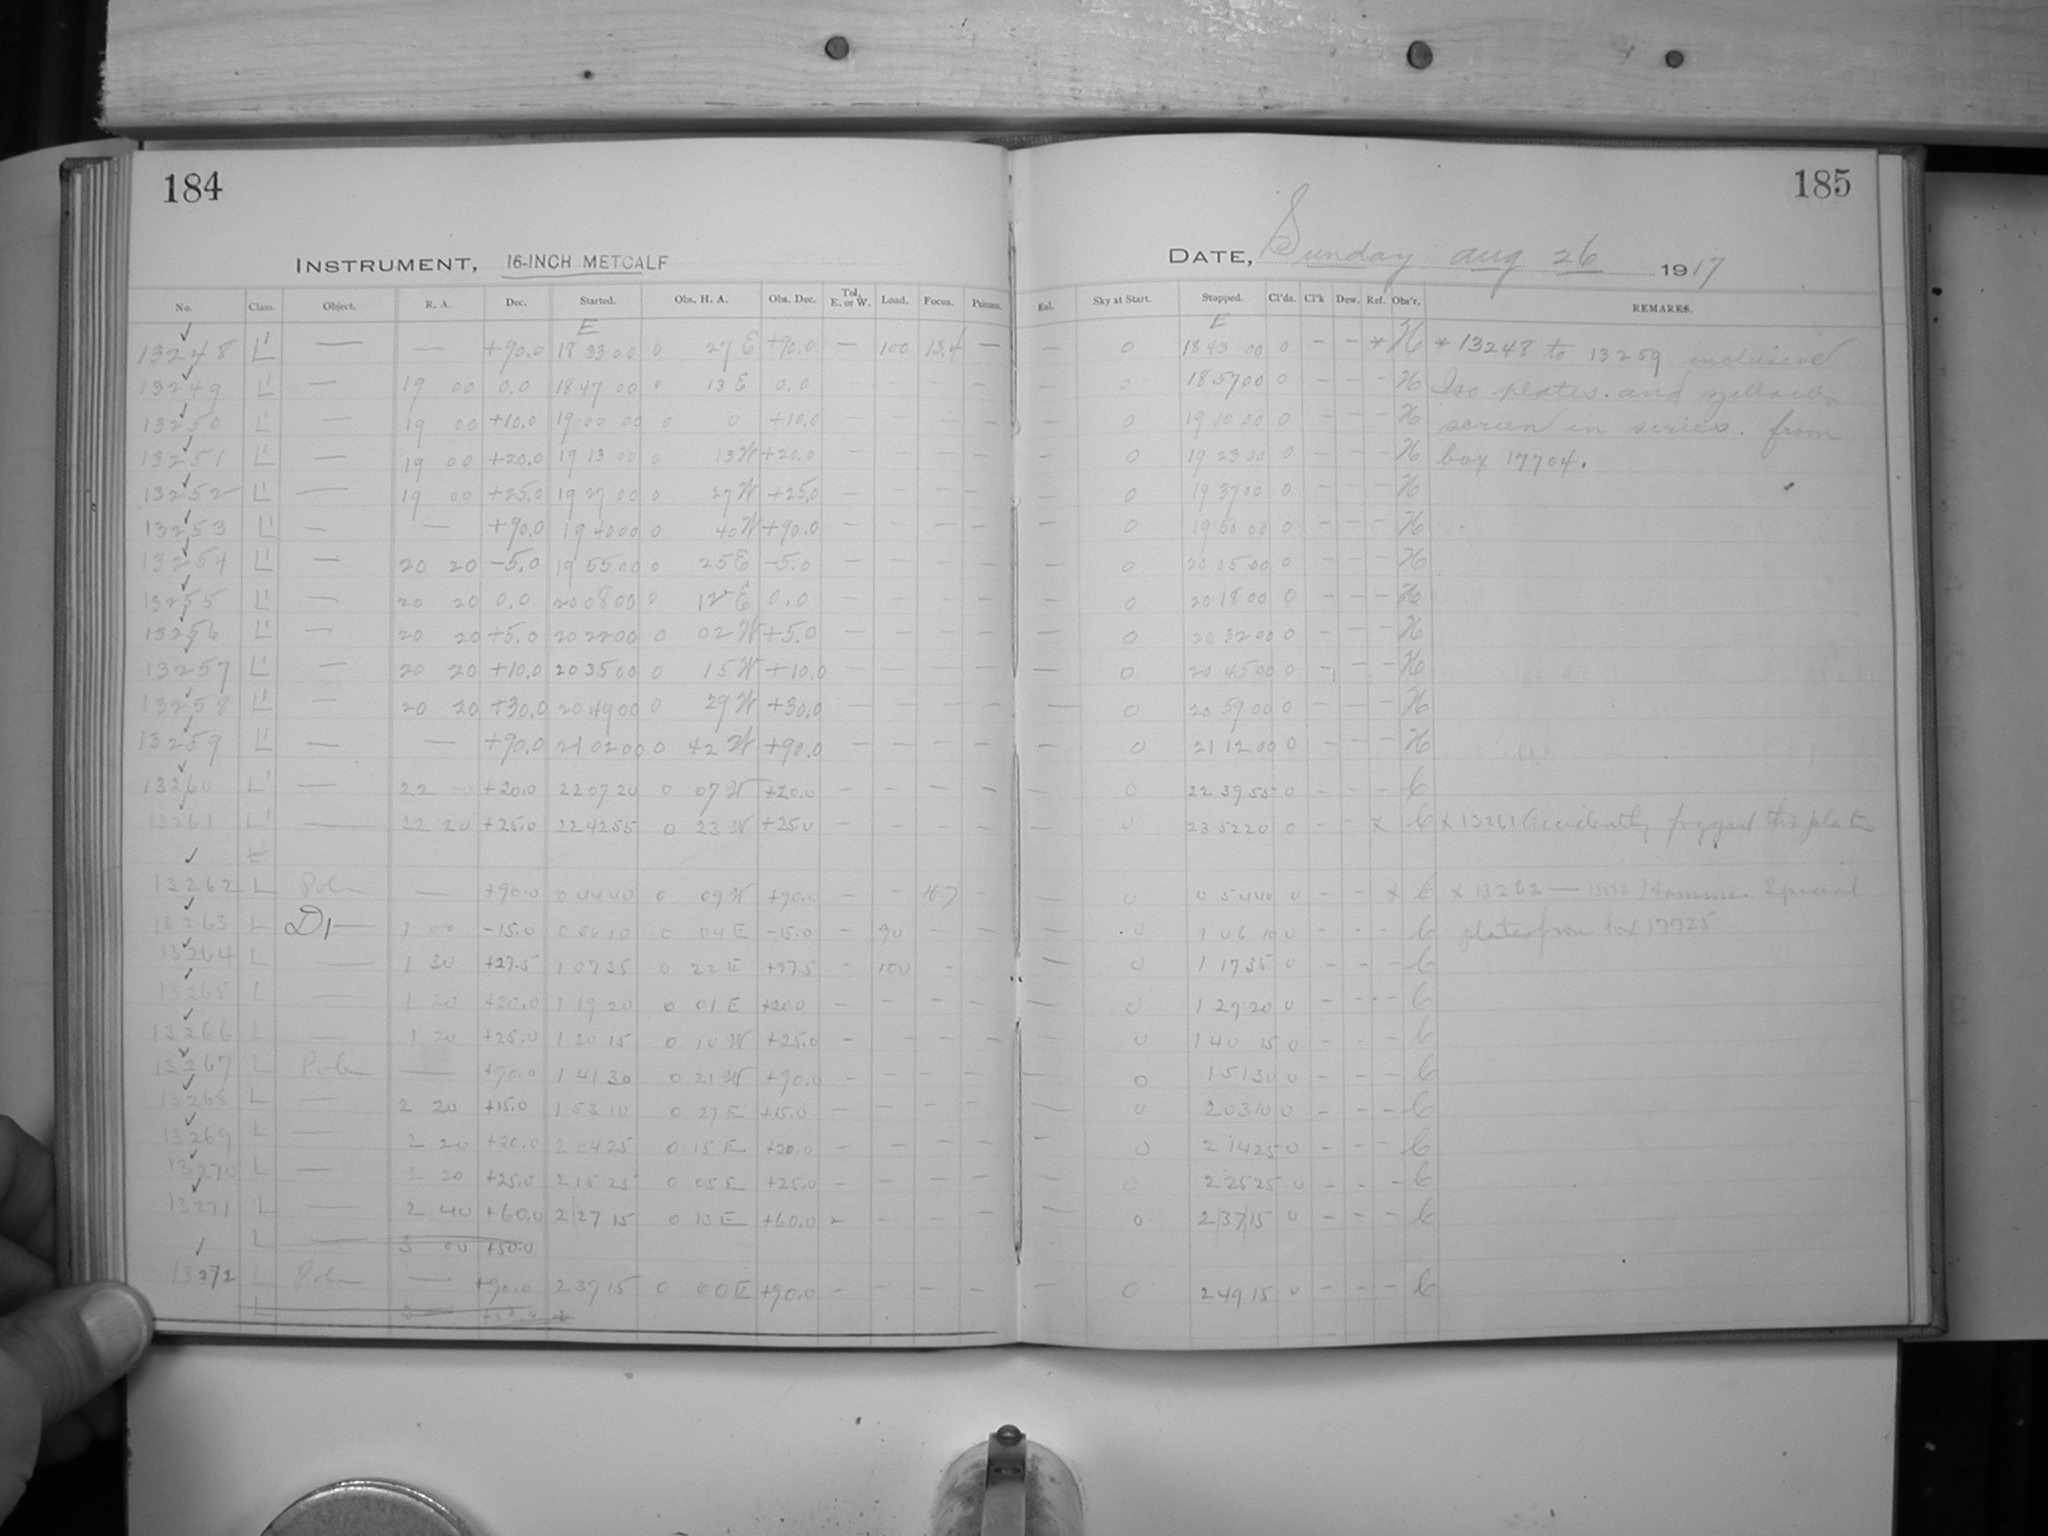 184
INSTRUMENT, 16-INCH METCALF
No. Class. Object. R. A. Dec. Started. Obs. H. A. Obs. Dec. Tel. E. or W. Load. Focus. Prisms.
E
13248 L' — — +90.0 18 33 00 0 27 E +90.0 — 100 13.4 —
13249 L' — 19 00 0.0 18 47 00 0 13 E 0.0 — — — —
13250 L' — 19 00 +10.0 19 00 00 0 0 +10.0 — — — —
13251 L' — 19 00 +20.0 19 13 00 0 13 W +20.0 — — — —
13252 L' — 19 00 +25.0 19 27 00 0 27 W +25.0 — — — —
13253 L' — — +90.0 19 40 00 0 40 W +90.0 — — — —
13254 L' — 20 20 -5.0 19 55 00 0 25 E -5.0 — — — —
13255 L' — 20 20 0.0 20 08 00 0 12 E 0.0 — — — —
13256 L' — 20 20 +5.0 20 22 00 0 02 W +5.0 — — — —
13257 L' — 20 20 +10.0 20 35 00 0 15 W +10.0 — — — —
13258 L' — 20 20 +30.0 20 49 00 0 29 W +30.0 — — — —
13259 L' — — +90.0 21 02 00 0 42 W +90.0 — — — —
13260 L' — 22 00 +20.0 22 07 20 0 07 W +20.0 — — — —
13261 L' — 22 20 +25.0 22 42 55 0 23 W +25.0 — — — —
13262 L Pole — +90.0 0 44 40 0 09 W +90.0 — — —
13263 L D1— 1 00 -15.0 0 56 10 0 04 E -15.0 — 90 — —
13264 L — 1 30 +27.5 1 07 35 0 22 E +27.5 — 100 —
13265 L — 1 20 +20.0 1 19 20 0 01 E +20.0 — — — —
13266 L — 1 20 +25.0 1 30 15 0 10 W +25.0 — — — —
13267 L Pole — +90.0 1 41 30 0 21 W +90.0 — — — —
13268 L — 2 20 +15.0 1 53 10 0 27 E +15.0 — — — —
13269 L — 2 20 +20.0 2 04 25 0 15 E +20.0 — — — —
13270 L — 2 20 +25.0 2 15 25 0 05 E +25.0 — — — —
13271 L — 2 40 +60.0 2 27 15 0 13 E +60.0 — — — —
L — 3 00 +50.0
13272 L Pole — +90.0 2 39 15 0 00 E +90.0 — — — —
L
185
DATE, Sunday Aug 26 1917
Exl. Sky at Start. Stopped. Cl'ds. Cl'k Dew. Ref. Obs'r. REMARKS.
E
— 0 18 43 00 0 — — * H * 13248 to 13259 inclusive
0 18 57 00 0 — — — H Iso plates. and yellow
— 0 19 10 00 0 — — — H screen in series. from
— 0 19 23 00 0 — — — H box 17704.
— 0 19 37 00 0 — — — H
— 0 19 50 00 0 — — — H
— 0 20 05 00 0 — — — H
— 0 20 18 00 0 — — — H
— 0 20 32 00 0 — — — H
— 0 20 45 00 0 — — — H
— 0 20 59 00 0 — — — H
— 0 21 12 00 0 — — — H
— 0 22 39 55 0 — — — C
— 0 23 52 20 0 — — x C x 13261 Accidently fogged this plate
— 0 0 54 40 0 — — x C x 13262 — 13272 Hammer Special
— 0 1 06 10 0 — — — C plates from box 17725
— 0 1 17 35 0 — — — C
— 0 1 29 20 0 — — — C
— 0 1 40 15 0 — — — C
— 0 1 51 30 0 — — — C
— 0 2 03 10 0 — — — C
— 0 2 14 25 0 — — — C
— 0 2 25 25 0 — — — C
— 0 2 37 15 0 — — — C
— 0 2 49 15 0 — — — C